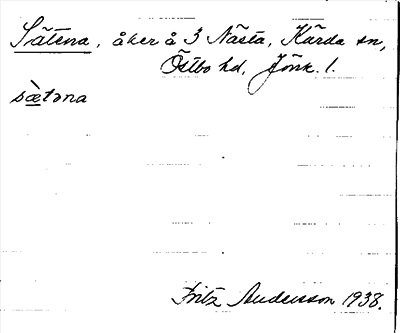 Sätena, åker å 3 Nästa, Kärda sn,
Östbo hd, Jönk. l.
sæ̀təna
Fritz Andersson 1938.